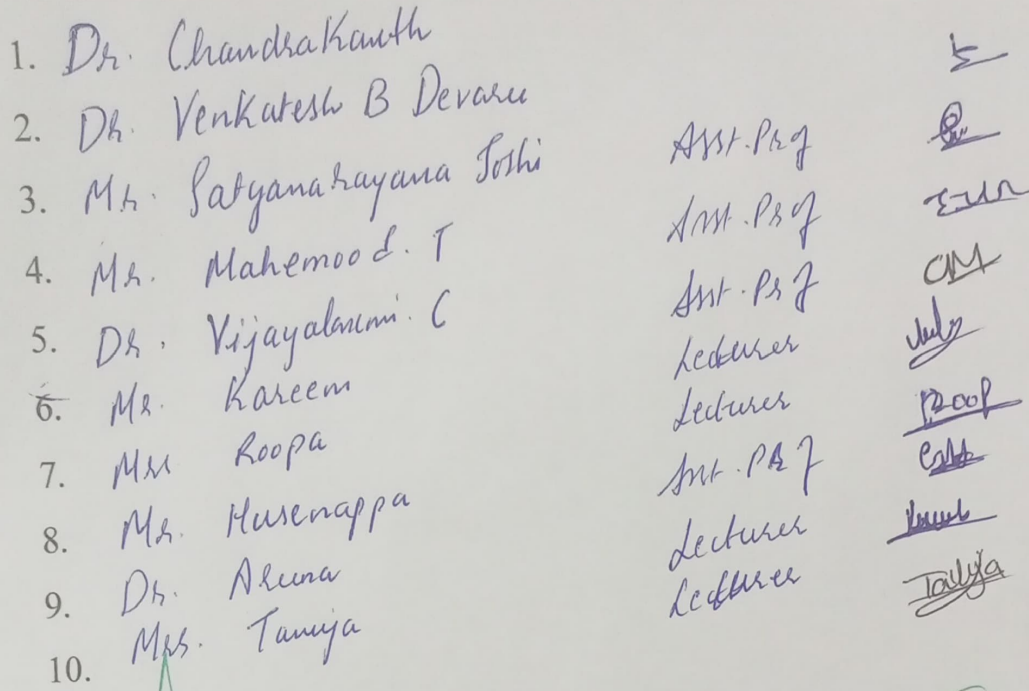 1. Dr. Chandrakanth
2. Dr. Venkatesh B Devaru
3. Mr. Satyanarayana Joshi Asst.Prof
4. Mr. Mahemood. T Asst.Prof
5. Dr. Vijayalaxmi. C Asst.Prof
6. Mr. Kareem Lecturer
7. Mrs Roopa Lecturer Roop
8. Mr. Husenappa Asst.Prof
9. Dr. Aruna Lecturer
10. Mrs. Tanuja Lecturer